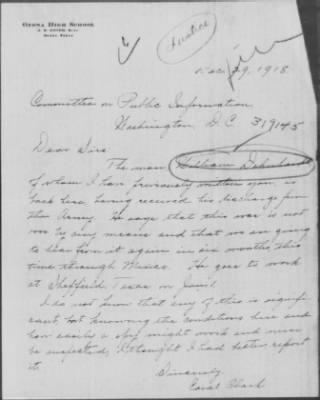 Ozona High School
Ozona, Texas
Justice
Dec. 29, 1918.
Committee on Public Information
Washington D.C. 319145
Dear Sirs
The man William
of whom I have previously written you is
back here having received his discharge from
the Army. He says that this war is not
won by any means and that we are going
to hear from it again in six months this
time through Mexico. He goes to work
at Sheffield Texas on Jan. 1.
I do not know that any of this is signifi-
cant, but knowing the conditions here and
how easily a spy might work and never
be suspected, I thought I had better report
it.
Sincerely,